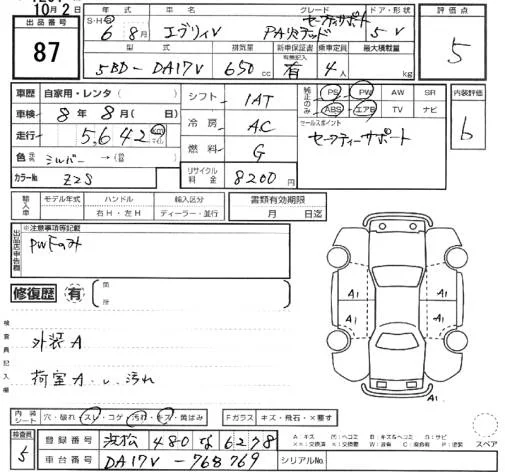 10月2日
出品番号 87
年式 S・H・R 6年8月
車名 エブリィV
グレード セーフティサポート PAハイルーフ
ドア・形状 5 V
評価点 5
型式 5BD-DA17V
排気量 650 cc
新車保証書 有無記入 有
乗車定員 4人
最大積載量 kg
車歴 自家用・レンタ( )
車検 8年8月( 日)
走行 5,642 km
色 元色 シルバー →(替色 )
カラーNo. Z2S
シフト 1AT
冷房 AC
燃料 G
リサイクル料金 8200円
純正のみ PS PW AW SR
ABS エアB TV ナビ
セールスポイント
セーフティーサポート
内装評価 b
輸入車 モデル年式 ハンドル 右H・左H 輸入区分 ディーラー・並行
書類有効期限 月 日迄
出品店申告欄 ※注意事項等記載
PWFのみ
修復歴 有 (箇所 )
検査員記入欄
外装A
荷室A.U.汚れ
A1 A1
A1 A1
内装シート 穴・破れ・スレ・コゲ・汚れ・キズ・黄ばみ
Fガラス キズ・飛石・×要す
A:キズ
スペア
検査員 5
登録番号 浜松 480 な 6278
車台番号 DA17V-768769
シリアルNo.